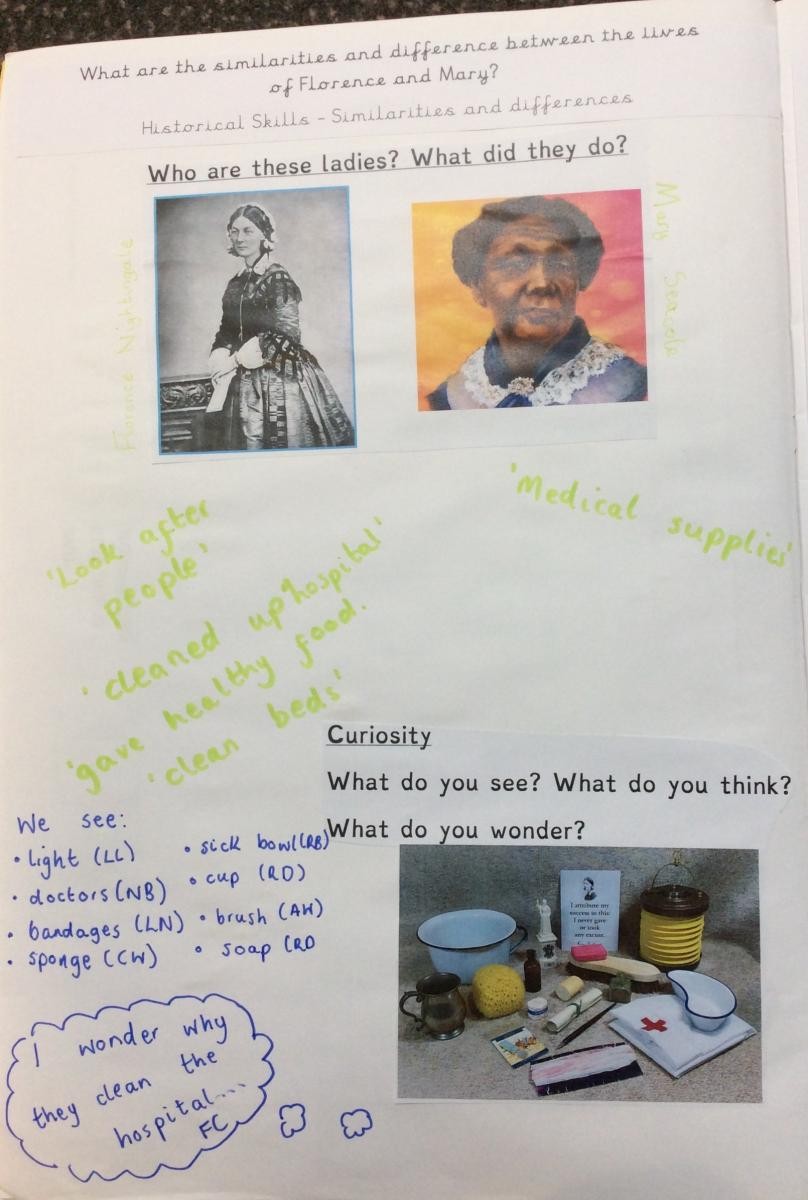 What are the similarities and difference between the lives
of Florence and Mary?
Historical Skills - Similarities and differences
Who are these ladies? What did they do?
Florence Nightingale
Mary Seacole
'Look after
people'
'Medical supplies'
'cleaned up hospital'
'gave healthy food.
'clean beds'
Curiosity
What do you see? What do you think?
What do you wonder?
We see:
• light (LL)
• doctors (NB)
• bandages (LN)
• sponge (CW)
• sick bowl (RB)
• cup (RO)
• brush (AW)
• soap (RO
I attribute my
success to this:
I never gave
or took
any excuse.
I wonder why
they clean the
hospital....
FC